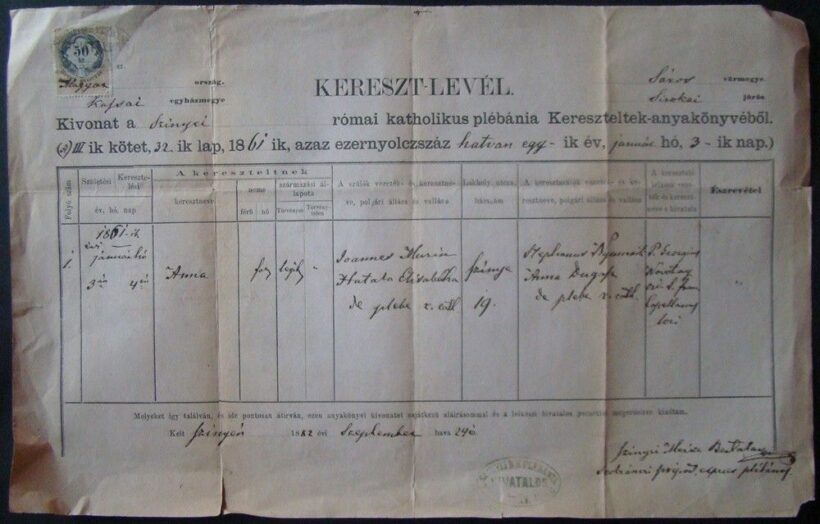 50
kr.
Magyar ország.
Kassai egyházmegye
KERESZT-LEVÉL.
Sáros vármegye.
Sirokai járás
Kivonat a Szinyei római katholikus plébánia Kereszteltek-anyakönyvéből.
III ik kötet, 32. ik lap, 1861 ik, azaz ezernyolczszáz hatvan egy - ik év, január hó, 3 - ik nap.)
Folyó szám
Születési
Keresztelési
év. hó. nap
A kereszteltnek
keresztneve
neme
férfi nő
származási állapota
Törvényes
Törvénytelen
A szülők vezeték- és keresztneve, polgári állása és vallása
Lakhely, utcza, házszám
A keresztszülők vezeték- és keresztneve, polgári állása és vallása
A keresztelő
Észrevétel
1.
1861-ik
évi
januárhó
3án 4én
Anna
Joannes Murin
Hatala Elisabetha
de plebe r. cath
Szinye
19.
Stephanus
Anna
de plebe r. cath.
P. Georgius
Capellanus
loci
Melyeket így találván, és ide pontosan átírván, ezen anyakönyvi kivonatot sajátkezű aláírásommal és a lelkészi hivatalos pecséttel megerősítve kiadtam.
Kelt Szinyén 1882 évi Szeptember hava 24én
HIVATALOS
Szinyei Merse